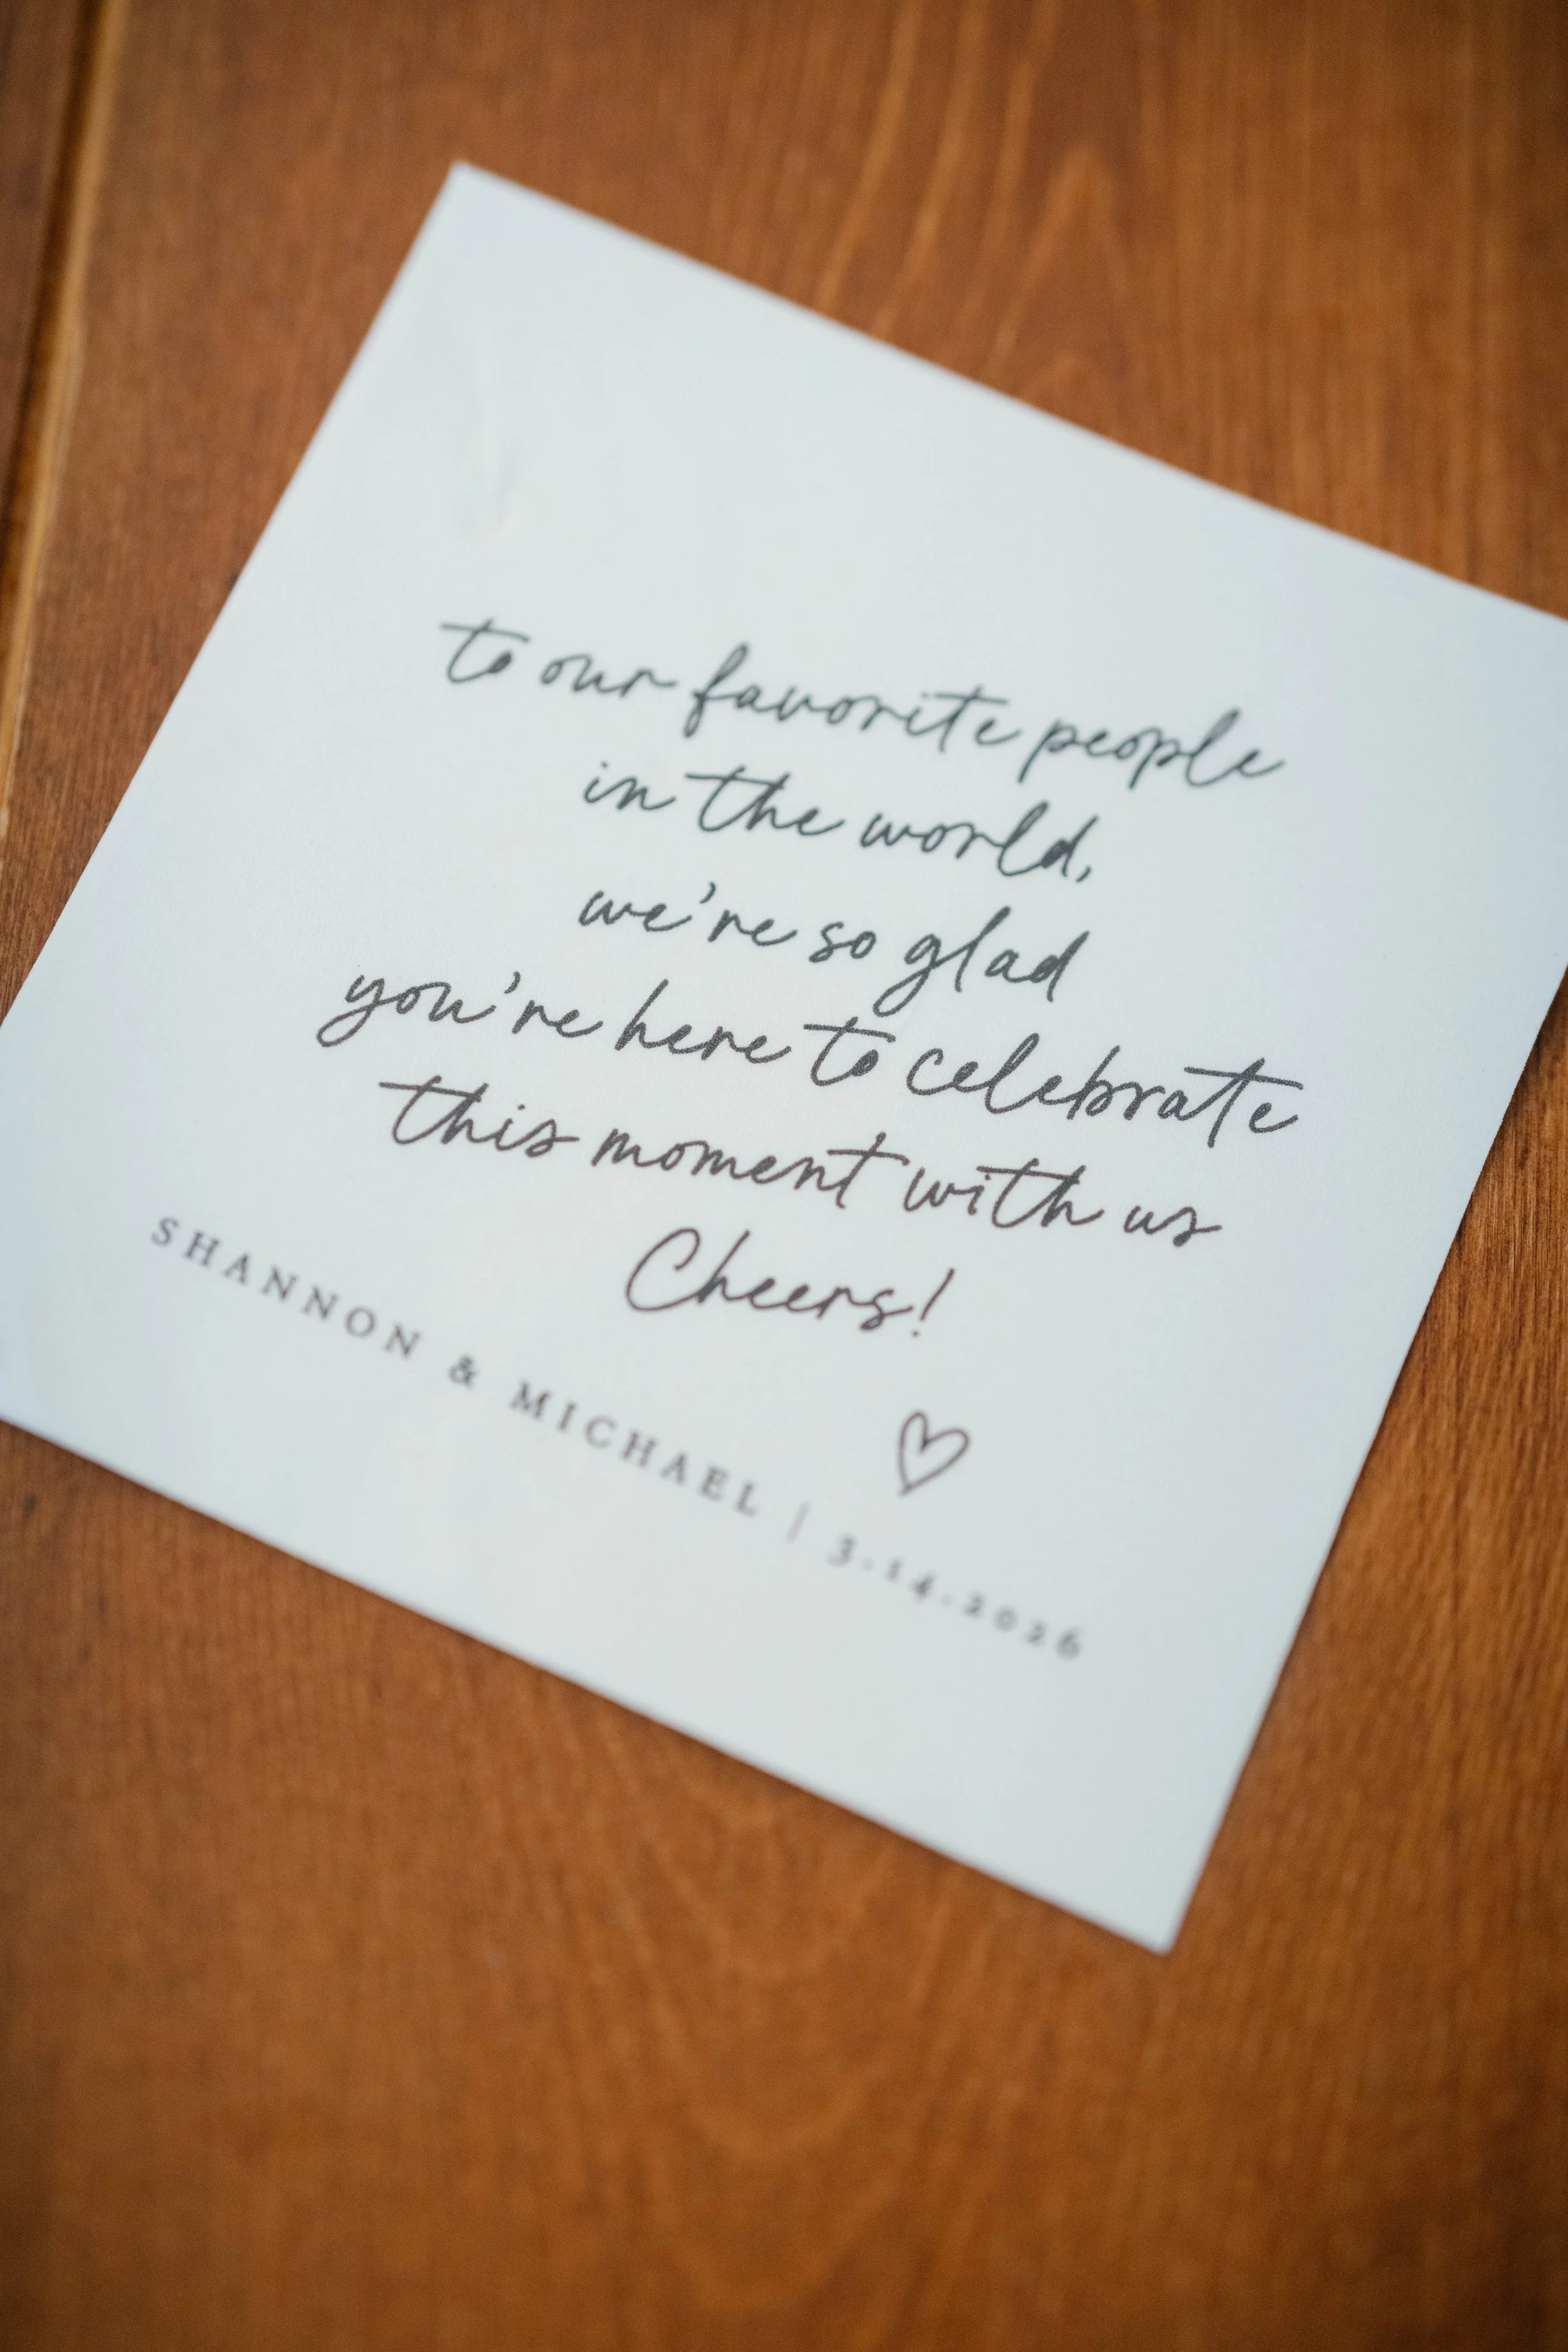 to our favorite people
in the world,
we're so glad
you're here to celebrate
this moment with us
Cheers!
SHANNON & MICHAEL | 3-14-2026